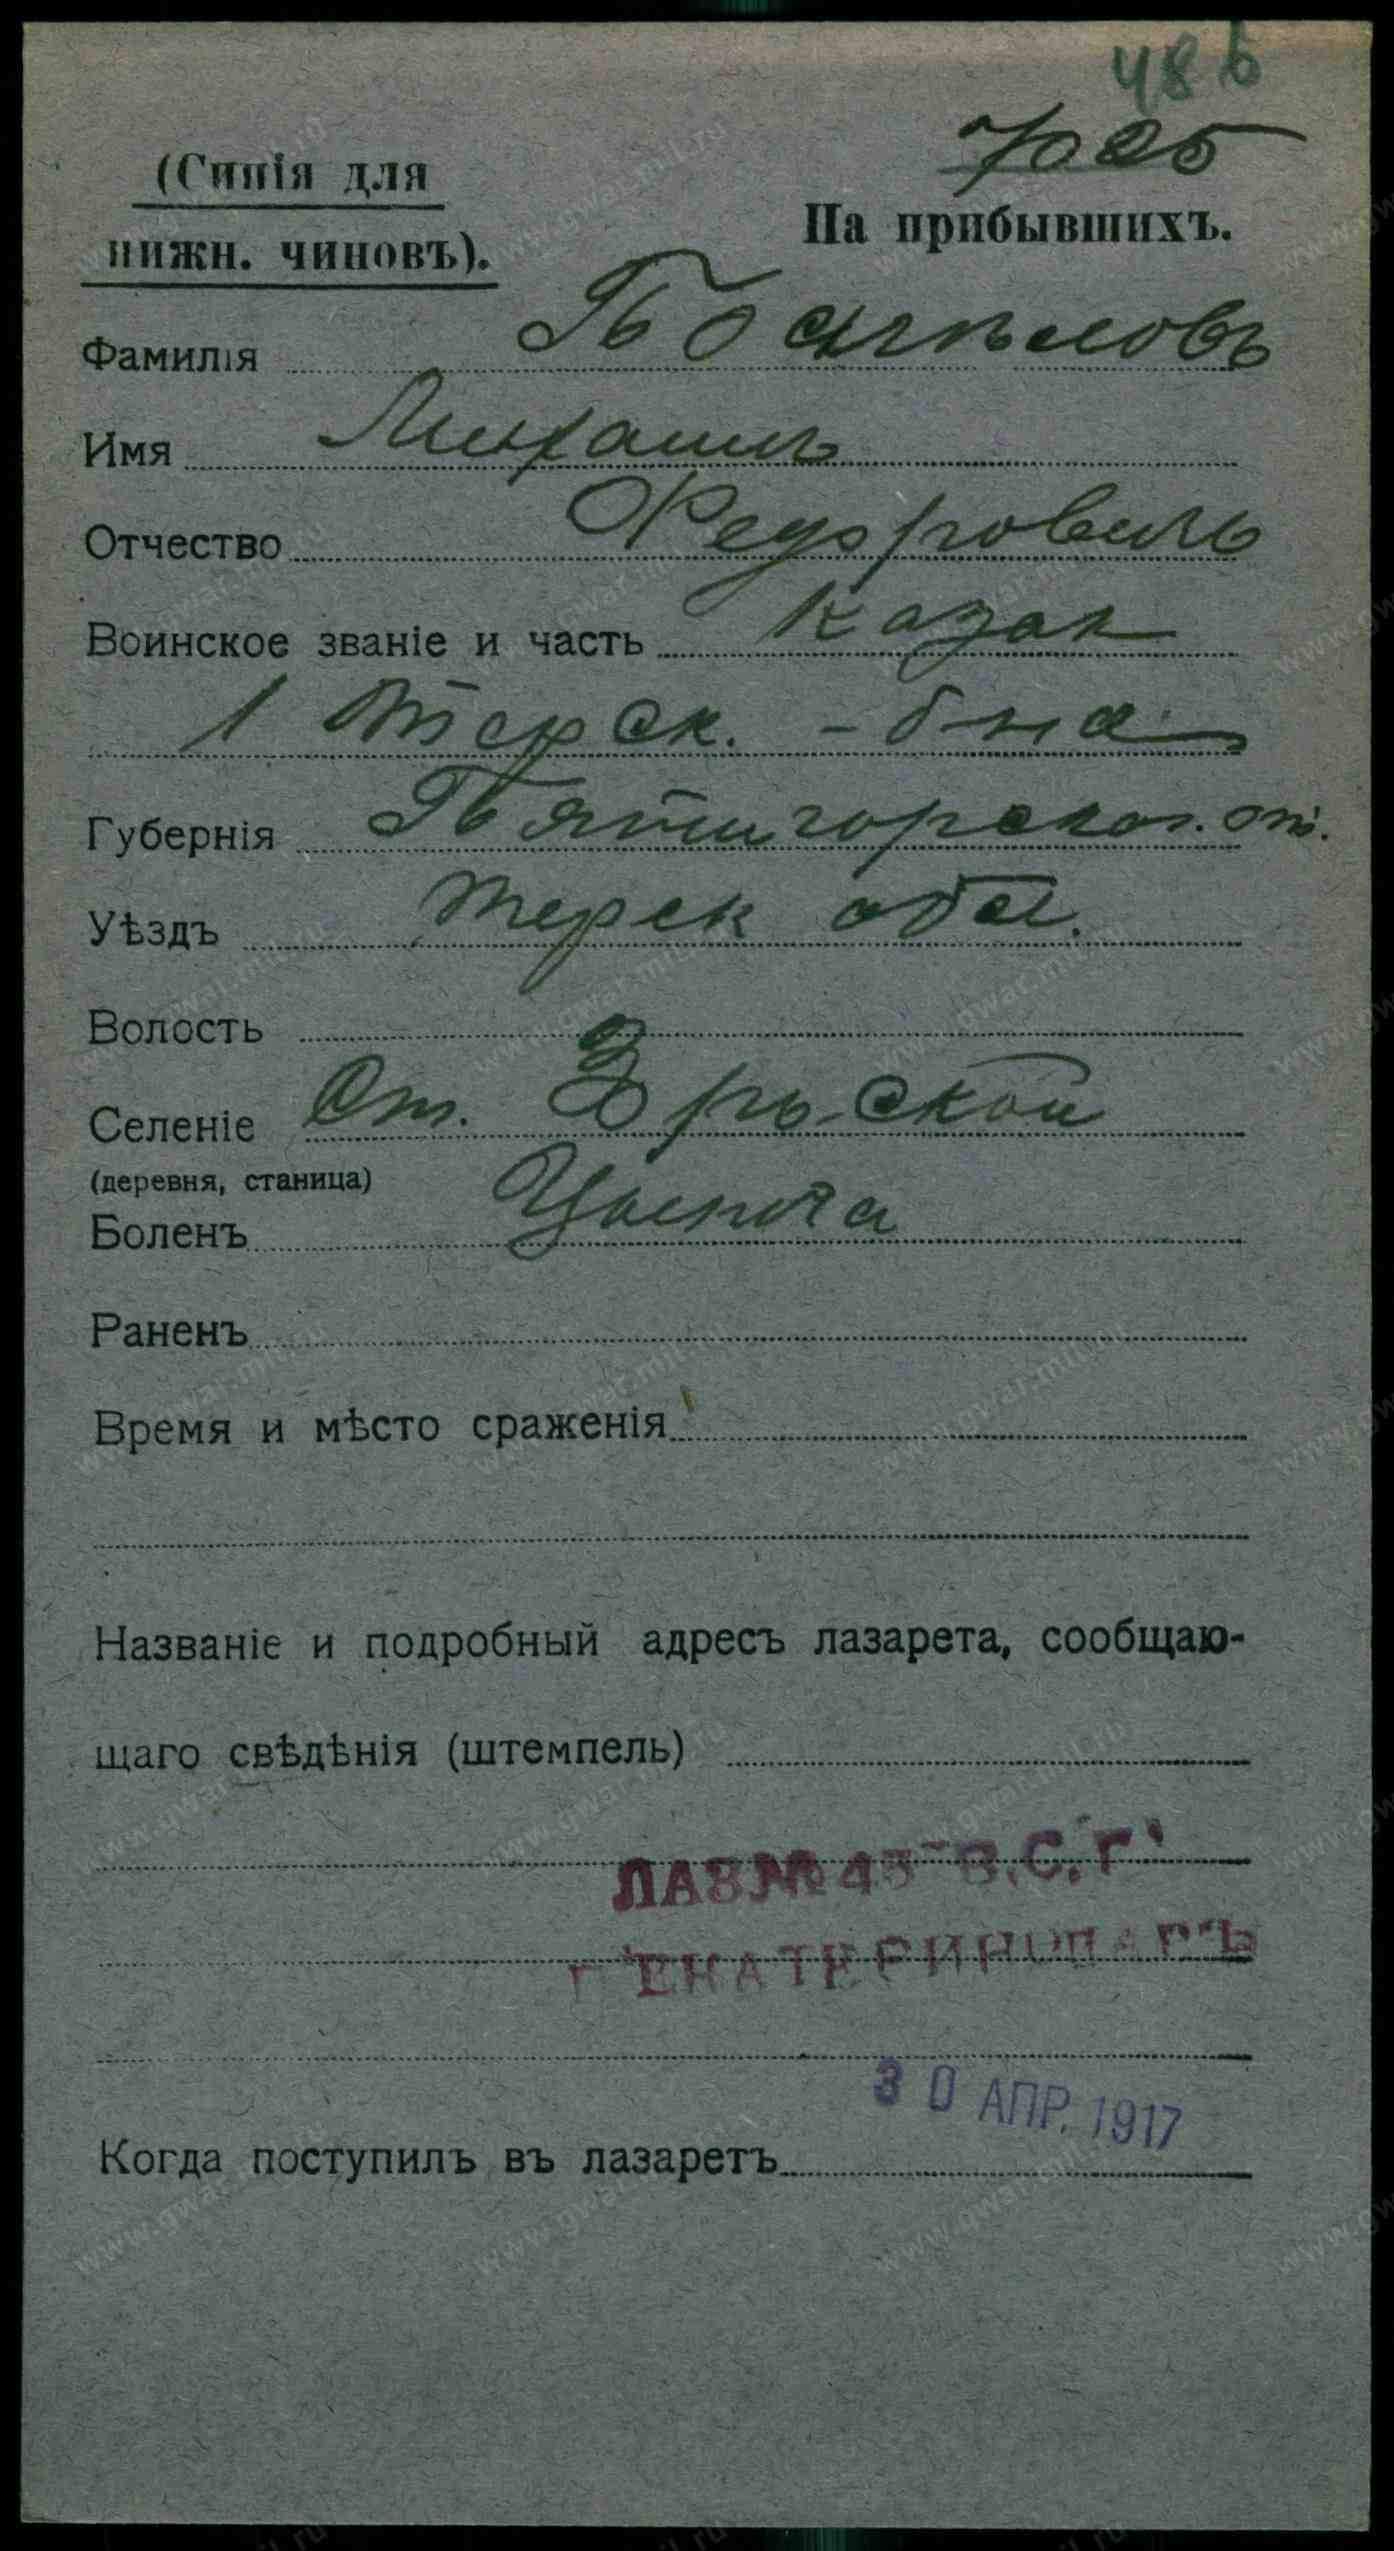 486
7025
(Синія для
нижн. чиновъ).
На прибывшихъ.
Фамилія
Имя Михаилъ
Отчество Федоровичъ
Воинское званіе и часть казак
1 Терск. - бна
Губернія Пятигорског. от.
Уѣздъ Терск обл.
Волость
Селеніе Ст. ской
(деревня, станица)
Боленъ Цынга
Раненъ
Время и мѣсто сраженія
Названіе и подробный адресъ лазарета, сообщаю-
щаго свѣдѣнія (штемпель)
ЛАЗ № 43 В.С.Г.
г ЕКАТЕРИНОДАРЪ
30 АПР. 1917
Когда поступилъ въ лазаретъ